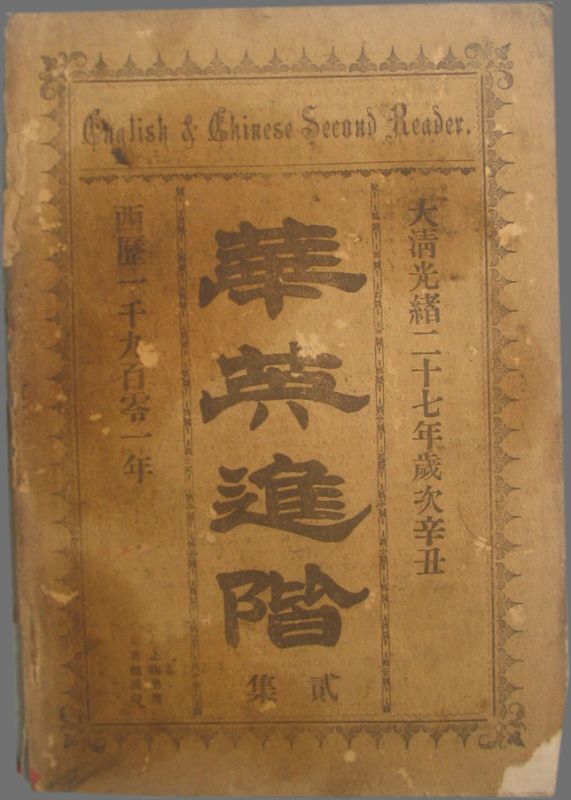 English & Chinese Second Reader.
大清光緒二十七年歲次辛丑
華英進階
貳集
西歷一千九百零一年